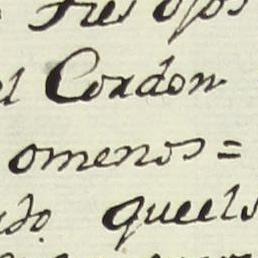 Tres ojos
el Cordon
omenos=
do queels